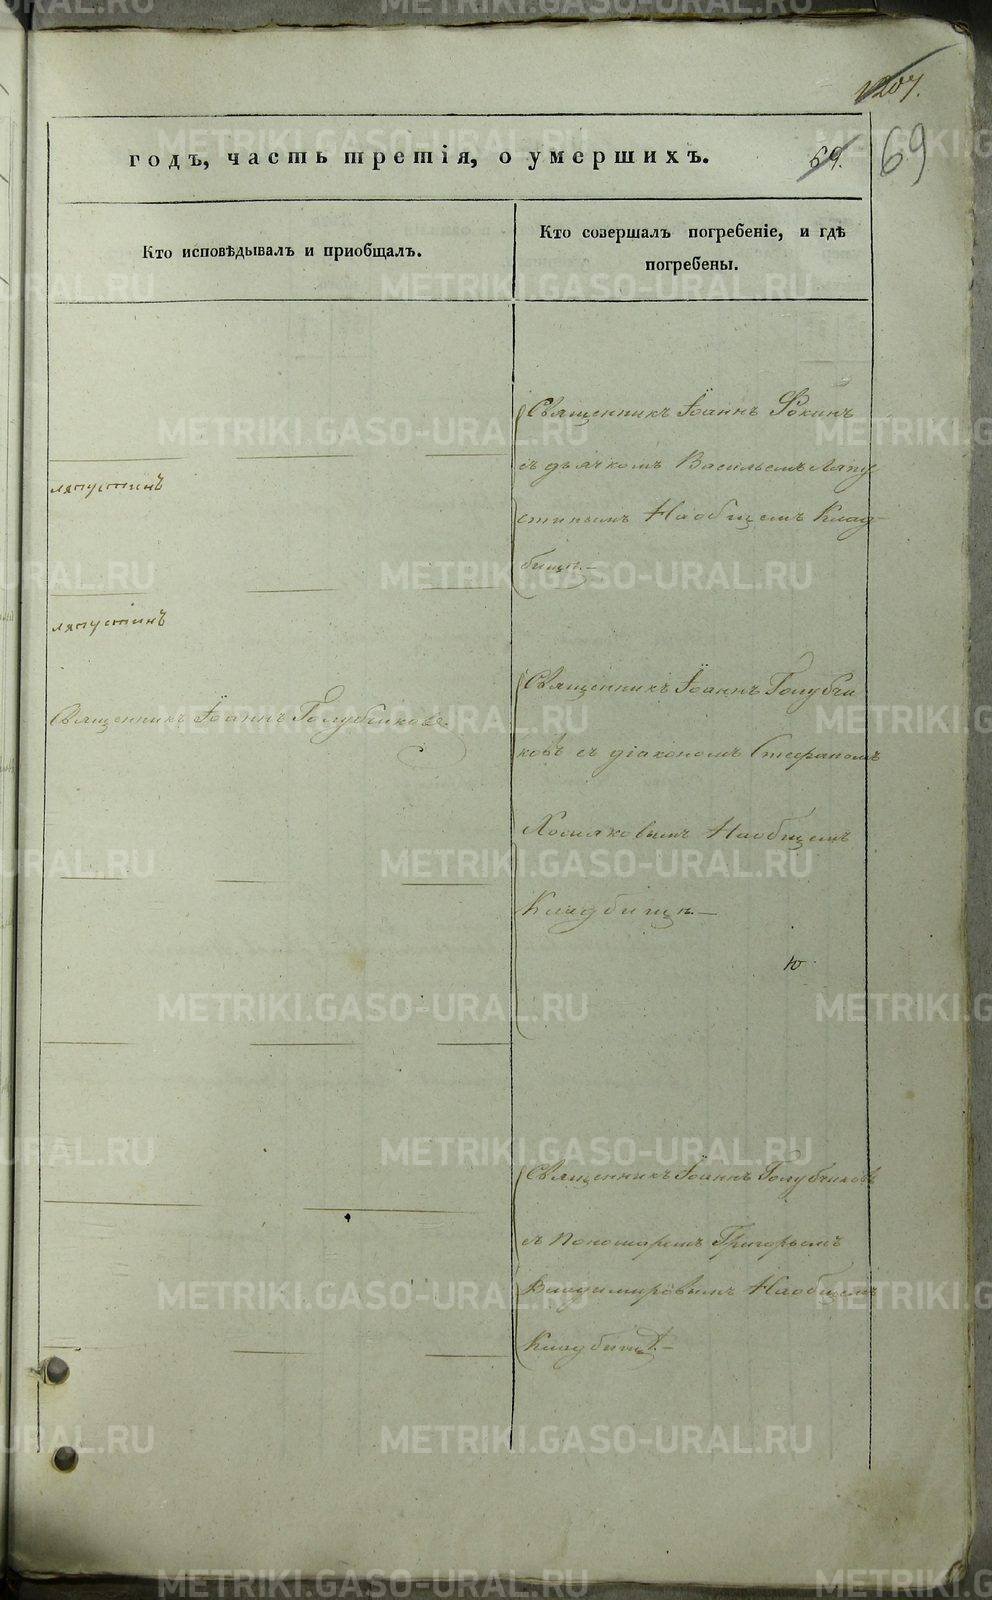 1207.
годъ, часть третія, о умершихъ.
69.
69
Кто исповѣдывалъ и приобщалъ.
Кто совершалъ погребеніе, и гдѣ
погребены.
Священникъ Іоаннъ Фокинъ
съ дьячкомъ Васильемъ Ляпу
стинымъ На общемъ Клад-
бищѣ.
ляпустинъ
ляпустинъ
Священникъ Іоаннъ Голубчиковъ.
Священникъ Іоаннъ Голубчи
ковъ съ діакономъ Стефаномъ
Хомяковымъ На общемъ
Кладбищѣ.—
Ю
Священникъ Іоаннъ Голубчиковъ
съ Пономаремъ Григорьемъ
Владимировымъ На общемъ
Кладбищѣ.—
METRIKI.GASO-URAL.RU